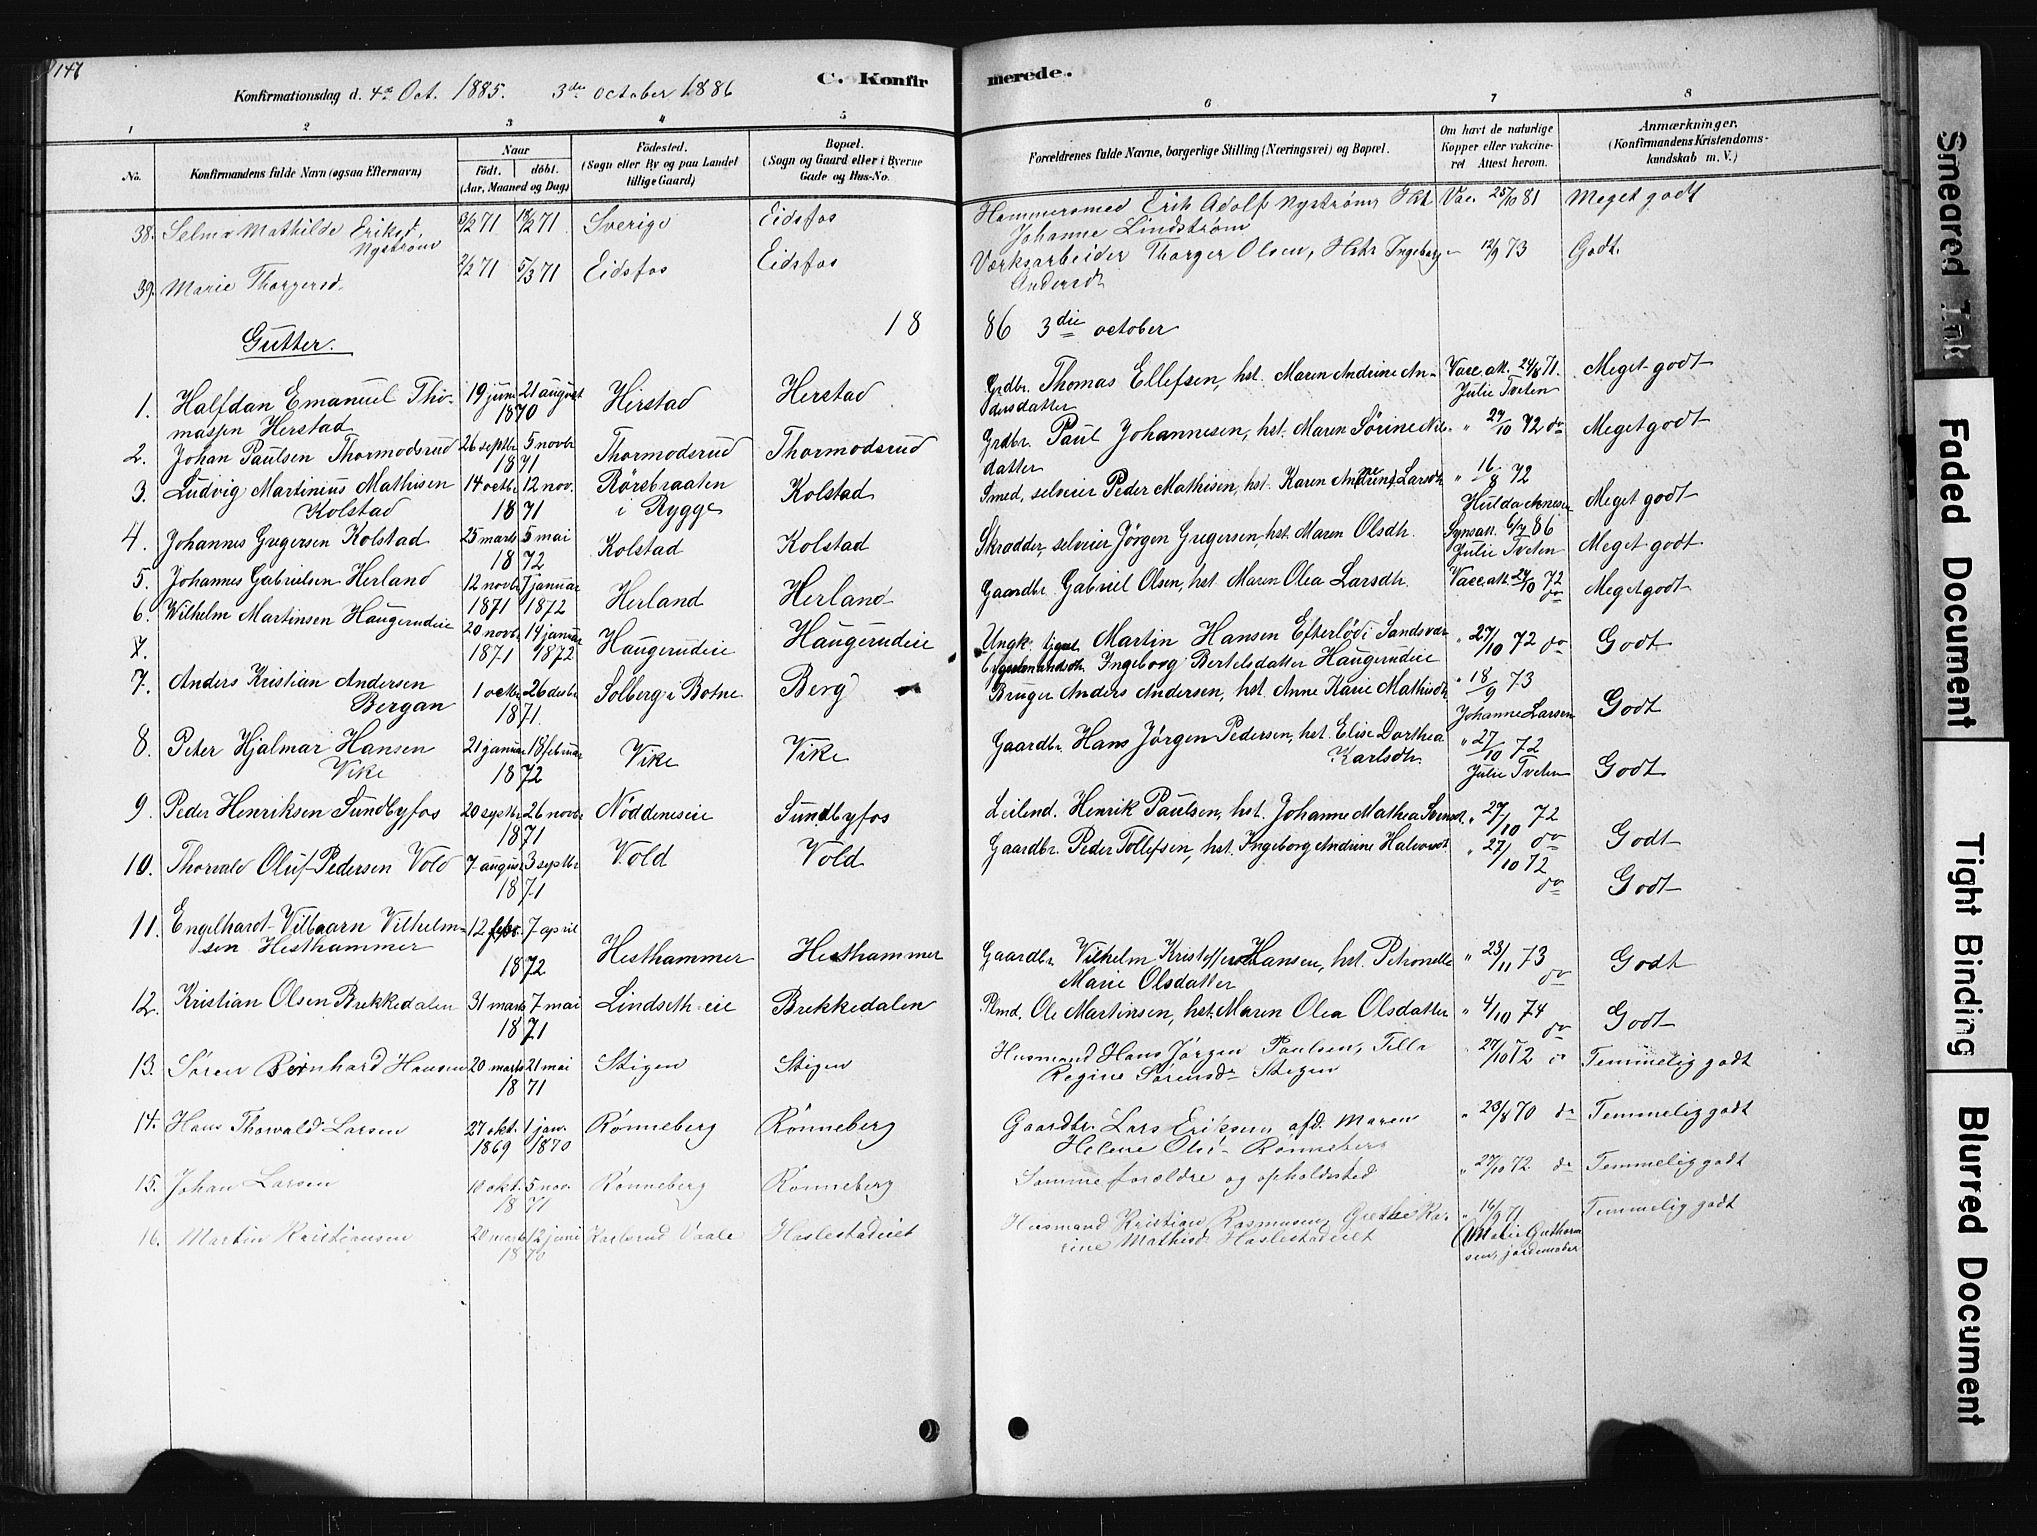 147
C. Konfirmerede.
Konfirmationsdag d. 4de Oct. 1885. 3die october 1886
1 2 3 4 5 6 7 8
No. Konfirmandens fulde Navn (ogsaa Efternavn) Naar födt. döbt. (Aar, Maaned og Dag) Födested. (Sogn eller By og paa Landet tillige Gaard) Bopæl. (Sogn og Gaard eller i Byerne Gade og Hus-No. Forældrenes fulde Navne, borgerlige Stilling (Næringsvei) og Bopæl. Om havt de naturlige Kopper eller vakcineret Attest herom. Anmærkninger. (Konfirmandens Kristendomskundskab m. V.)
38. Selma Mathilde Eriksd. Nystrøm 71 71 Sverige Eidsfos Hammersmed Erik Adolf Nystrøm, Johanne Lindstrøm Vac. 25/10 81 Meget godt
39. Marie Thorgersd. 2/2 71 5/3 71 Eidsfos Eidsfos Værksarbeider Thorger Olsen, Ingeborg Andersdt 12/9 73 Godt.
1886 3die october
Gutter.
1. Halfdan Emanuel Thomassen Herstad 19 juni 21 august 1870 Herstad Herstad Grdbr. Thomas Ellefsen, hst. Maren Andrine Andersdatter Vacc. att. 24/8 71. Julie Tveten Meget godt
2. Johan Paulsen Thormodsrud 26 septbr 5 novbr 1871 Thormodsrud Thormodsrud Grdbr. Paul Johannesen, hst. Maren Sørine Nilsdatter " 27/10 72 do Meget godt
3. Ludvig Martinius Mathisen Kolstad 14 octbr 12 nov. 1871 Rörebraaten i Rygge Kolstad Smed, selveier Peder Mathisen, hst. Karen Larsdtr " 16/8 72 Hulda Meget godt
4. Johannes Gregersen Kolstad 25 marts 5 mai 1872 Kolstad Kolstad Skrædder, selveier Jörgen Gregersen, hst. Maren Olsdtr. Synsatt. 86 Julie Tveten Meget godt
5. Johannes Gabrielsen Herland 12 novbr 7 januar 1871 1872 Herland Herland Gaardbr. Gabriel Olsen, hst. Maren Olea Larsdtr. Vacc. att. 27/10 72 do Meget godt
6. Wilhelm Martinsen Haugerudeie 20 novbr 14 januar 1871 1872 Haugerudeie Haugerudeie Ungk. Martin Hansen Efterlöd i Sandsvær Ingeborg Bertelsdatter Haugerudeie " 27/10 72 do Godt
7.
7. Anders Kristian Andersen Bergan 1 octbr 26 decbr 1871. Solberg i Botne Berg Bruger Anders Andersen, hst. Anne Karie Mathisdtr " 18/9 73 Johanne Larsen Godt
8. Peter Hjalmar Hansen Vike 21 januar 18 februar 1872 Vike Vike Gaardbr. Hans Jörgen Pedersen, hst. Elise Dorthea Karlsdtr. " 27/10 72 Julie Tveten Godt
9. Peder Henriksen Sundbyfos 20 septbr 26 novbr 1871 Nöddeneseie Sundbyfos Leilend. Henrik Paulsen, hst. Johanne Mathea " 27/10 72 do Godt
10. Thorvald Oluf Pedersen Vold 7 august 3 septbr 1871 Vold Vold Gaardbr. Peder Tollefsen, hst. Ingeborg Andrine Halvorsdt " 27/10 72 do Godt
11. Engelhardt Vilbaarn Vilhelmsen Hesthammer 12 febr. 7 april 1872 Hesthammer Hesthammer Gaardbr. Vilhelm Kristoffer Hansen, hst. Petronelle Marie Olsdatter " 23/11 73 do Godt
12. Kristian Olsen Brekkedalen 31 marts 7 mai 1871 Lindseth-eie Brekkedalen Plmd. Ole Martinsen, hst. Maren Olea Olsdatter " 4/10 74 do Godt
13. Søren Bernhard Hansen 20 marts 21 mai 1871 Stigen Stigen Husmand Hans Jørgen Paulsen, Regine Sørensdr Stigen 27/10 72 do Temmelig godt
14. Hans Thorvald Larsen 27 okt. 1 jan. 1869 1870 Rønneberg Rønneberg Gaardbr. Lars Eriksen, afd. Maren Helene Rønneberg " 23/8 70 do Temmelig godt
15. Johan Larsen 10 okt. 5 nov. 1871 Rønneberg Rønneberg Samme forældre og opholdssted " 27/10 72 do Temmelig godt
16. Martin Kristiansen 20 marts 12 juni 1870 Karlsrud Vaale Haslestadeiet Husmand Kristian Rasmussen, Grethe Karine Mathisd. Haslestadeiet " 14/9 71 (Marie Guthormsen, jordemoder Temmelig godt
Smeared Ink
Faded Document
Tight Binding
Blurred Document